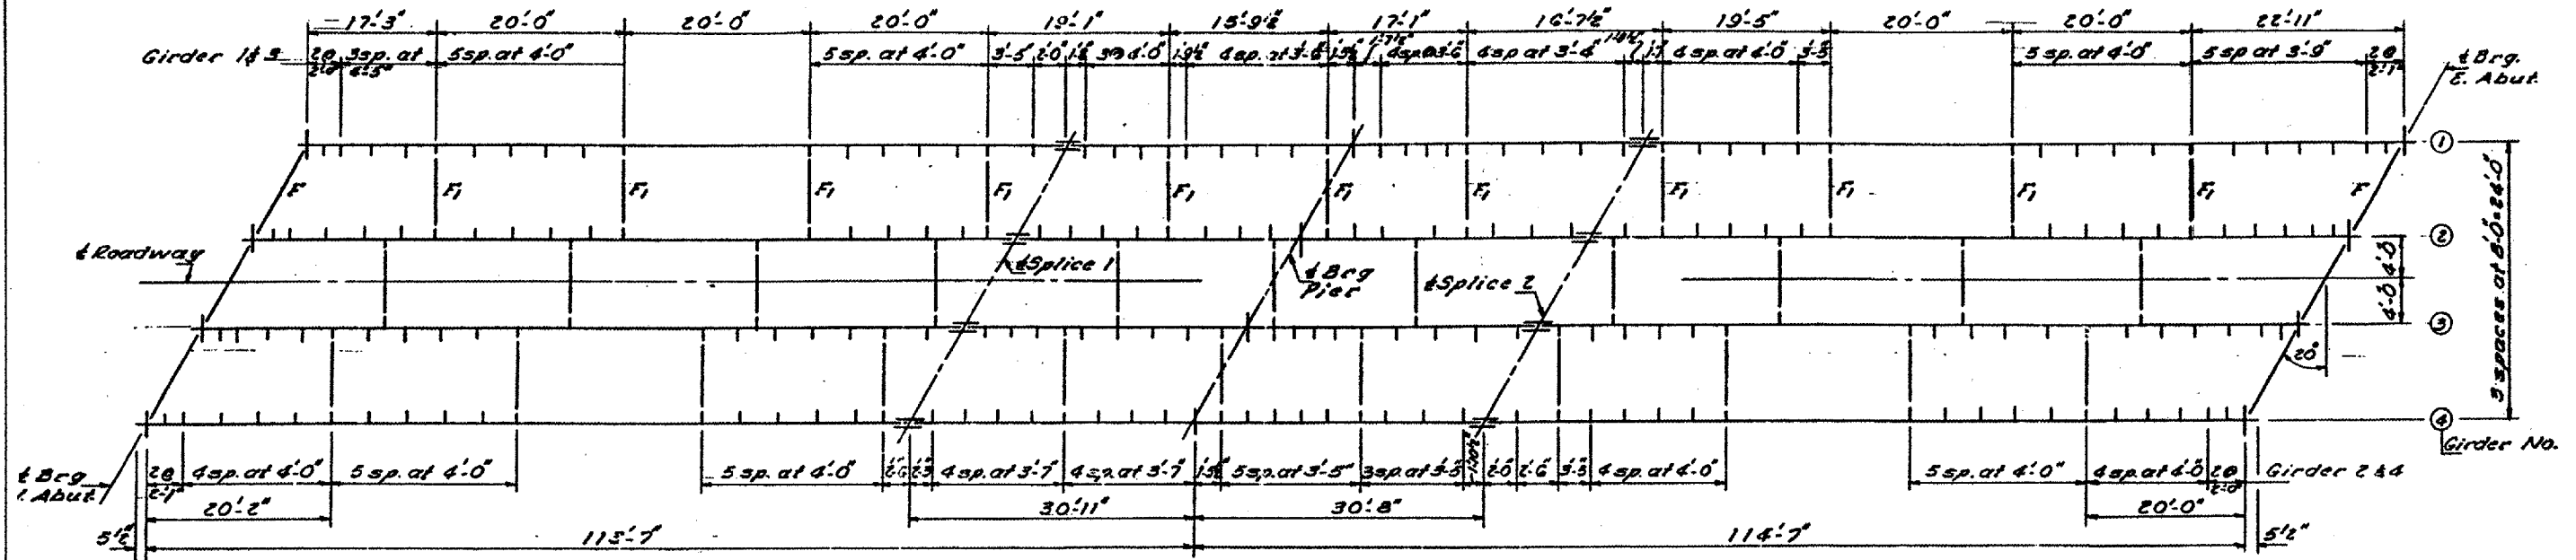 17'-3" 20'-0" 20'-0" 20'-0" 19'-1" 15'-9½" 17'-1" 16'-7½" 19'-5" 20'-0" 20'-0" 22'-11"
Girder 1 & 3 2@ 2'-0" 3sp. at 4'-5" 5sp. at 4'-0" 5 sp. at 4'-0" 3'-5" 2'-0" 3@ 4'-0" 4sp. at 4 sp. at 3'-4" 4 sp. at 4'-0" 5 sp. at 4'-0" 5 sp. at 3'-9" 2@ 2'-1"
℄ Brg.
E. Abut.
①
F F₁ F₁ F₁ F₁ F₁ F₁ F₁ F₁ F₁ F₁ F₁ F
②
℄ Roadway
℄ Splice 1
℄ Brg
Pier
℄ Splice 2
4'-0" 4'-0"
3 spaces at 8'-0" = 24'-0"
③
20°
④
Girder No.
℄ Brg
Abut.
2@ 2'-1" 4 sp. at 4'-0" 5 sp. at 4'-0" 5 sp. at 4'-0" 4 sp. at 3'-7" 4 sp. at 3'-7" 5 sp. at 3'-5" 3 sp. at 2'-0" 2'-6" 4 sp. at 4'-0" 5 sp. at 4'-0" 4 sp. at 4'-0" 2@ 2'-0" Girder 2 & 4
20'-2" 30'-11" 30'-8" 20'-0"
5½" 114'-7" 5½"